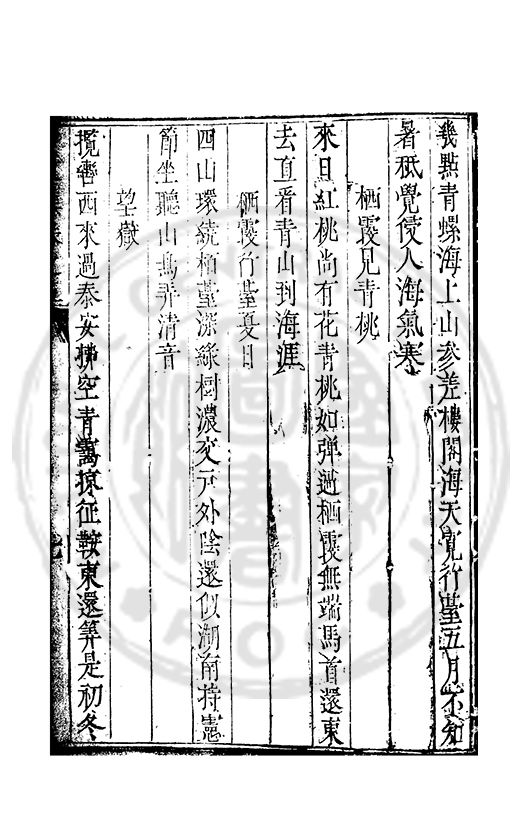 幾點青螺海上山參差樓閣海天寬行臺五月不知
暑秪覺侵人海氣寒
栖霞見青桃
來旦紅桃尚有花青桃如彈過栖霞無端馬首還東
去直看青山到海涯
栖霞行臺夏日
四山環繞栢臺深綠樹濃交戶外陰還似湖南持憲
節坐聽山鳥弄清音
望嶽
攬轡西來過泰安拂空青靄撩征鞍東還筭是初冬